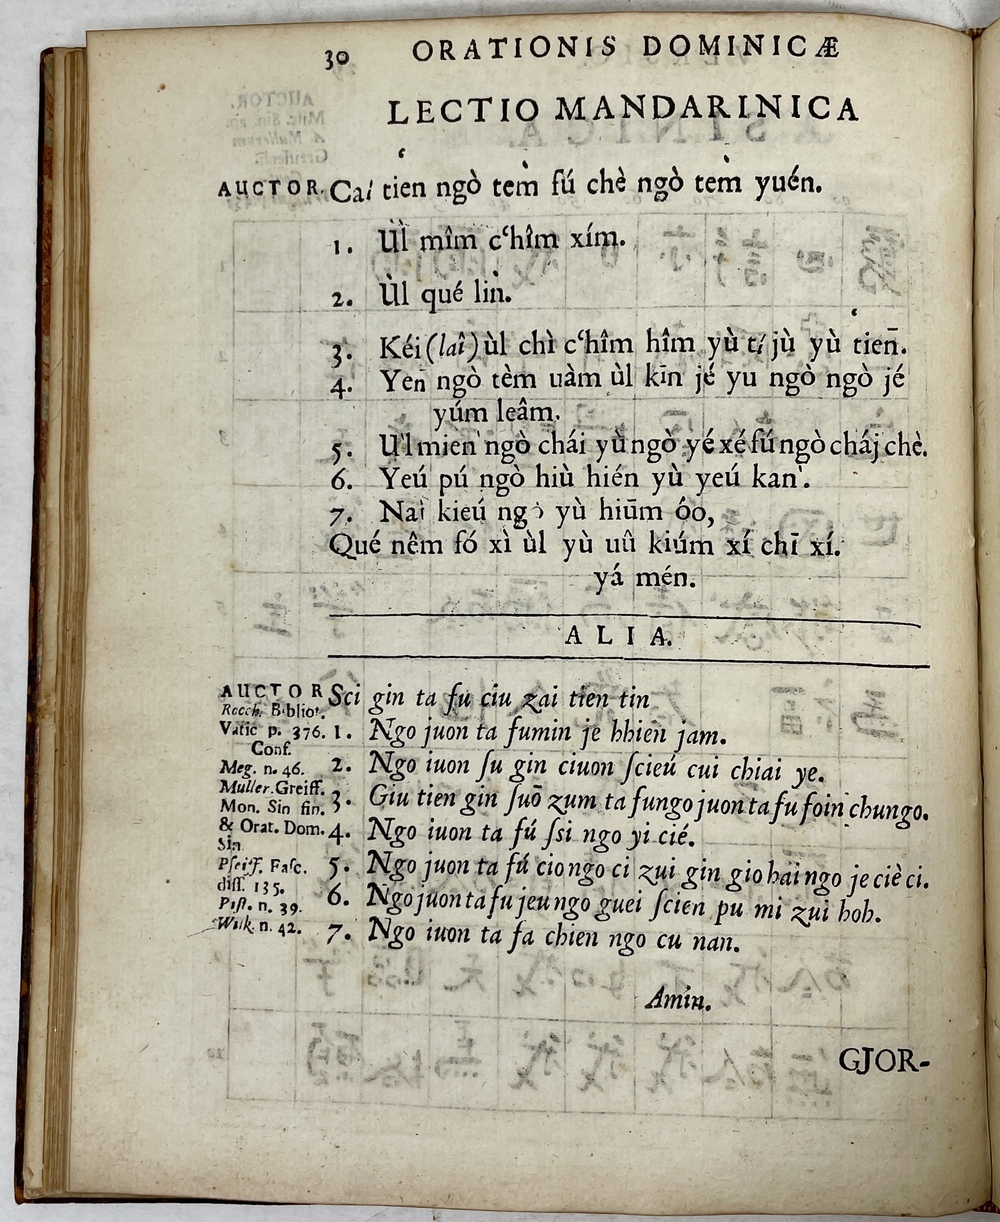 30 ORATIONIS DOMINICÆ
LECTIO MANDARINICA
AUCTOR. Cai tien ngò tem̀ fú chè ngò tem̀ yuén.
1. Ùl mîm c‘hîm xím.
2. Ùl qué lin.
3. Kéi (laî) ùl chì c‘hîm hîm yù ti jù yù tien̄.
4. Yen̄ ngò tèm uàm ùl kīn jé yu ngò ngò jé
yúm leâm.
5. Ùl mien ngò chái yù ngò yé xé fú ngò cháj chè.
6. Yeú pú ngò hiù hién yù yeú kaǹ.
7. Naì kieú ngò yù hiūm óo,
Qué nêm fó xì ùl yù uû kiúm xí chī xí.
yá mén.
ALIA.
AUCTOR Sci gin ta fu ciu zai tien tin
Rocch. Bibliot.
Vatic p. 376. 1. Ngo juon ta fumin je hhien jam.
Conf.
Meg. n. 46. 2. Ngo iuon ſu gin ciuon ſcieú cui chiai ye.
Muller. Greiff. 3. Giu tien gin ſuō zum ta fungo juon ta fu foin chungo.
Mon. Sin fin.
& Orat. Dom. 4. Ngo iuon ta fú ſsi ngo yi cié.
Sin
Pfeiff. Faſc. 5. Ngo juon ta fú ciongo ci zui gin gio hai ngo je ciè ci.
diſſ. 135.
Piſt. n. 39. 6. Ngo juon ta fu jeu ngo guei ſcien pu mi zui hoh.
Wilk. n. 42. 7. Ngo iuon ta fa chien ngo cu nan.
Amin.
GJOR-